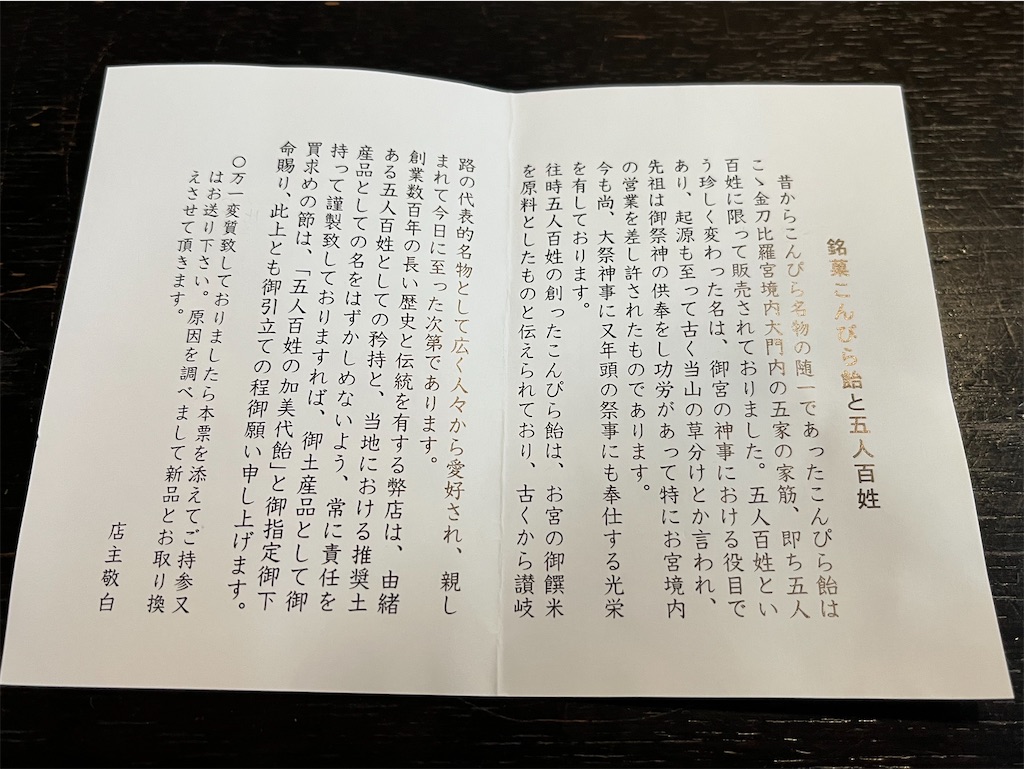 銘菓こんぴら飴と五人百姓
昔からこんぴら名物の随一であったこんぴら飴は
こゝ金刀比羅宮境内大門内の五家の家筋、即ち五人
百姓に限って販売されておりました。五人百姓とい
う珍しく変わった名は、御宮の神事における役目で
あり、起源も至って古く当山の草分けとか言われ、
先祖は御祭神の供奉をし功労があって特にお宮境内
の営業を差し許されたものであります。
今も尚、大祭神事に又年頭の祭事にも奉仕する光栄
を有しております。
往時五人百姓の創ったこんぴら飴は、お宮の御饌米
を原料としたものと伝えられており、古くから讃岐
路の代表的名物として広く人々から愛好され、親し
まれて今日に至った次第であります。
創業数百年の長い歴史と伝統を有する弊店は、由緒
ある五人百姓としての矜持と、当地における推奨土
産品としての名をはずかしめないよう、常に責任を
持って謹製致しておりますれば、御土産品として御
買求めの節は、「五人百姓の加美代飴」と御指定御下
命賜り、此上とも御引立ての程御願い申し上げます。
〇万一変質致しておりましたら本票を添えてご持参又
はお送り下さい。原因を調べまして新品とお取り換
えさせて頂きます。
店主敬白